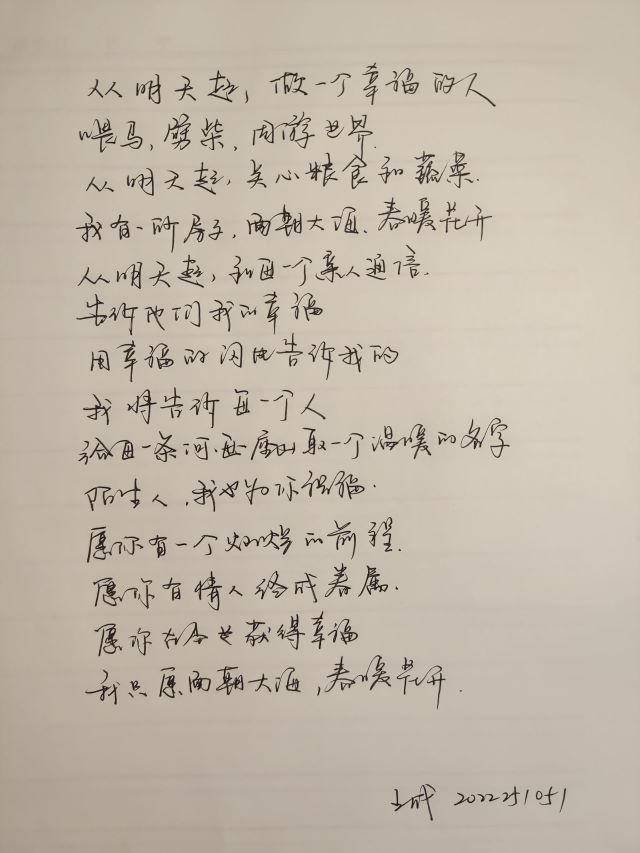 从明天起，做一个幸福的人
喂马，劈柴，周游世界.
从明天起，关心粮食和蔬菜.
我有一所房子，面朝大海、春暖花开
从明天起，和每一个亲人通信.
告诉他们我的幸福
用幸福的闪电告诉我的
我将告诉每一个人
给每一条河.每座山取一个温暖的名字
陌生人，我也为你祝福.
愿你有一个灿烂的前程.
愿你有情人终成眷属.
愿你在今世获得幸福
我只愿面朝大海，春暖花开.